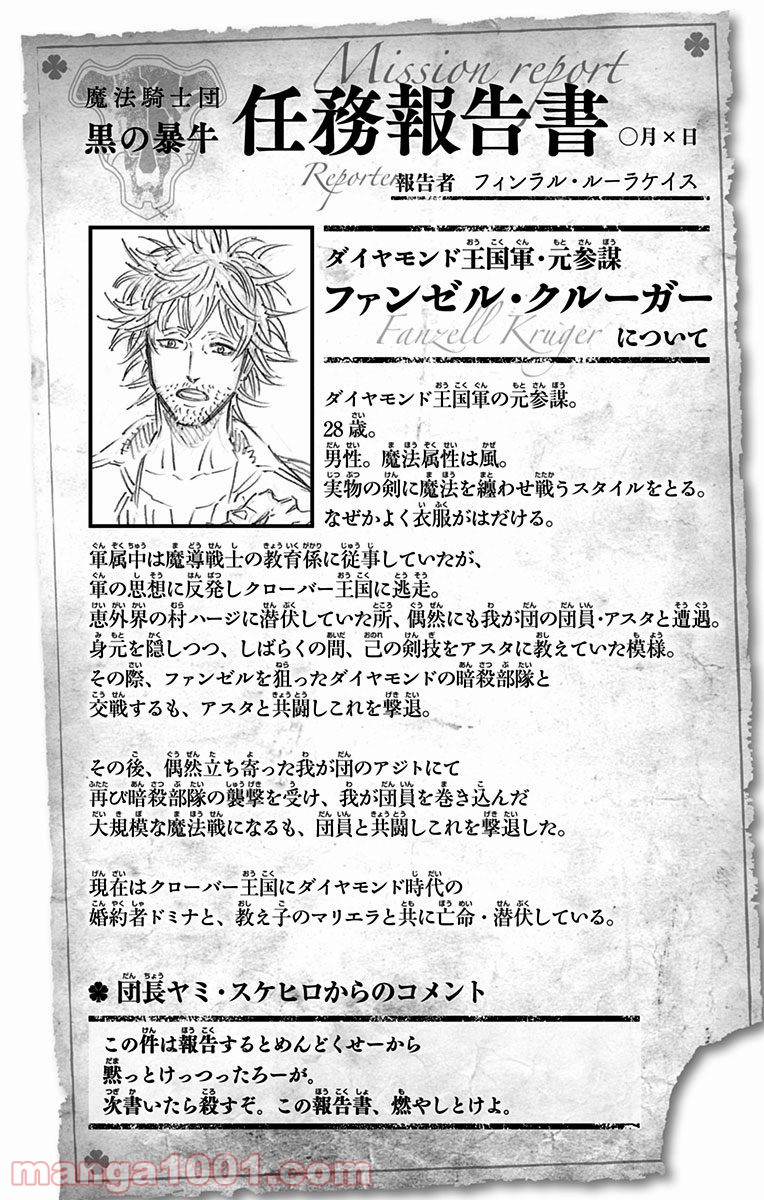 Mission report
魔法騎士団
黒の暴牛
任務報告書
〇月×日
Reporter
報告者 フィンラル・ルーラケイス
ダイヤモンド王国軍・元参謀
ファンゼル・クルーガー
Fanzell Kruger
について
ダイヤモンド王国軍の元参謀。
28歳。
男性。魔法属性は風。
実物の剣に魔法を纏わせ戦うスタイルをとる。
なぜかよく衣服がはだける。
軍属中は魔導戦士の教育係に従事していたが、
軍の思想に反発しクローバー王国に逃走。
恵外界の村ハージに潜伏していた所、偶然にも我が団の団員・アスタと遭遇。
身元を隠しつつ、しばらくの間、己の剣技をアスタに教えていた模様。
その際、ファンゼルを狙ったダイヤモンドの暗殺部隊と
交戦するも、アスタと共闘しこれを撃退。
その後、偶然立ち寄った我が団のアジトにて
再び暗殺部隊の襲撃を受け、我が団員を巻き込んだ
大規模な魔法戦になるも、団員と共闘しこれを撃退した。
現在はクローバー王国にダイヤモンド時代の
婚約者ドミナと、教え子のマリエラと共に亡命・潜伏している。
団長ヤミ・スケヒロからのコメント
この件は報告するとめんどくせーから
黙っとけっつったろーが。
次書いたら殺すぞ。この報告書、燃やしとけよ。
manga1001.com